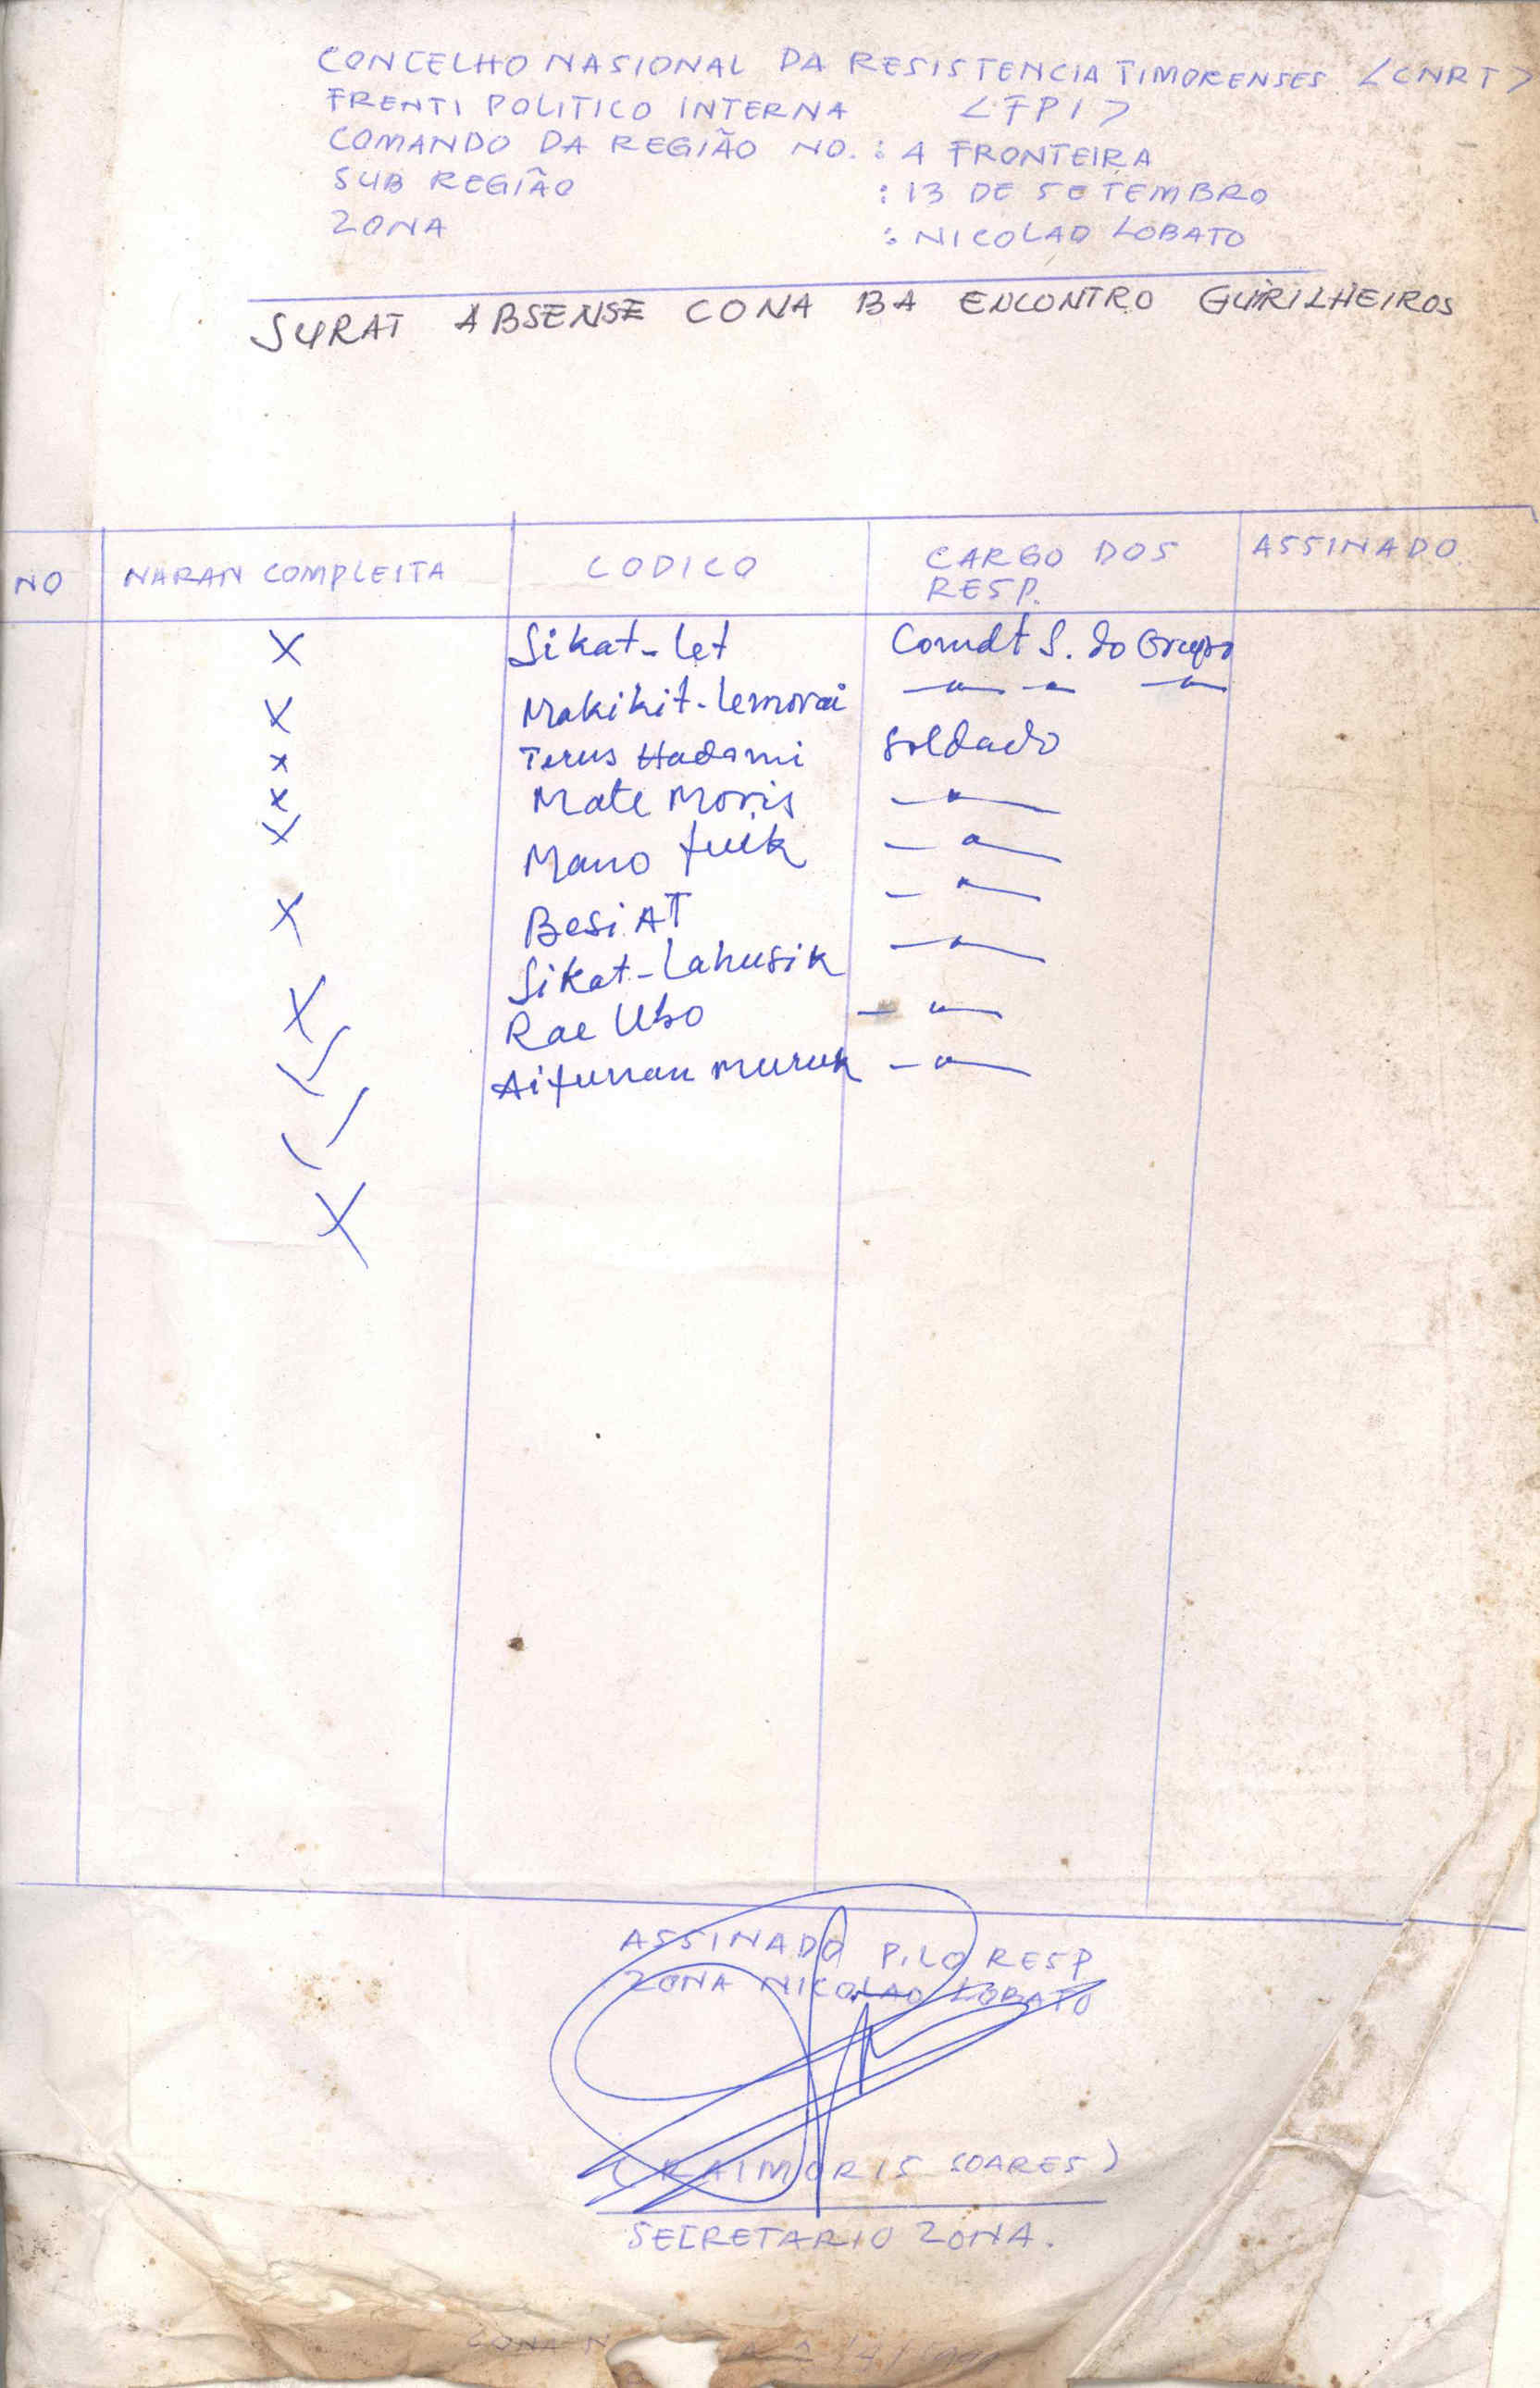 CONCELHO NASIONAL DA RESISTENCIA TIMORENSES <CNRT>
FRENTI POLITICO INTERNA <FPI>
COMANDO DA REGIÃO NO. : 4 FRONTEIRA
SUB REGIÃO : 13 DE SETEMBRO
ZONA : NICOLAO LOBATO
SURAT ABSENSE CONA BA ENCONTRO GUIRILHEIROS
NO NARAN COMPLEITA CODICO CARGO DOS RESP. ASSINADO.
X Sikat-let Comdt S. do Grupo
X Makikit-lemorai — " — " — " —
X Terus Hadomi Soldado
X Mate Moris — " —
X Mano fuik — " —
X Besi AT — " —
X Sikat-Lahusik — " —
X Rae Ubo — " —
X Aifunan muruk — " —
X
ASSINADO P.LO RESP
ZONA NICOLAO LOBATO
(RAIMORIS SOARES)
SECRETARIO ZONA.
ZONA N